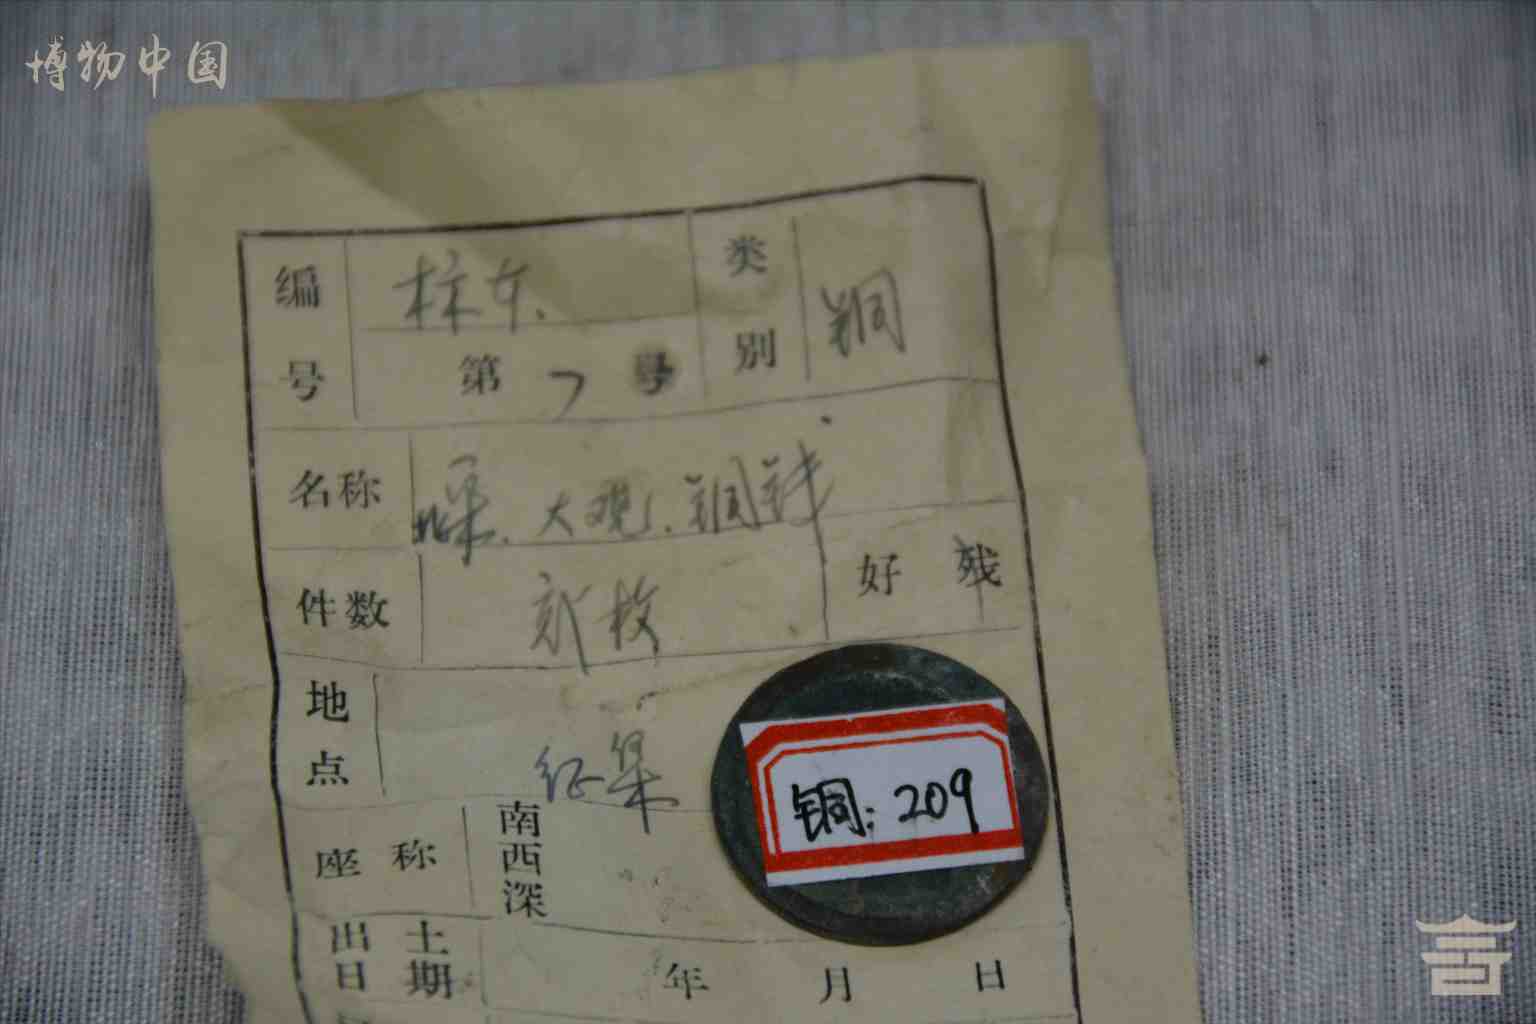 博物中国
编号 标本.
第 7 号
类别 铜
名称 北宋.大观.铜钱
件数 枚
好 残
地点 征集
铜:209
座称 南西深
出土日期 年 月 日